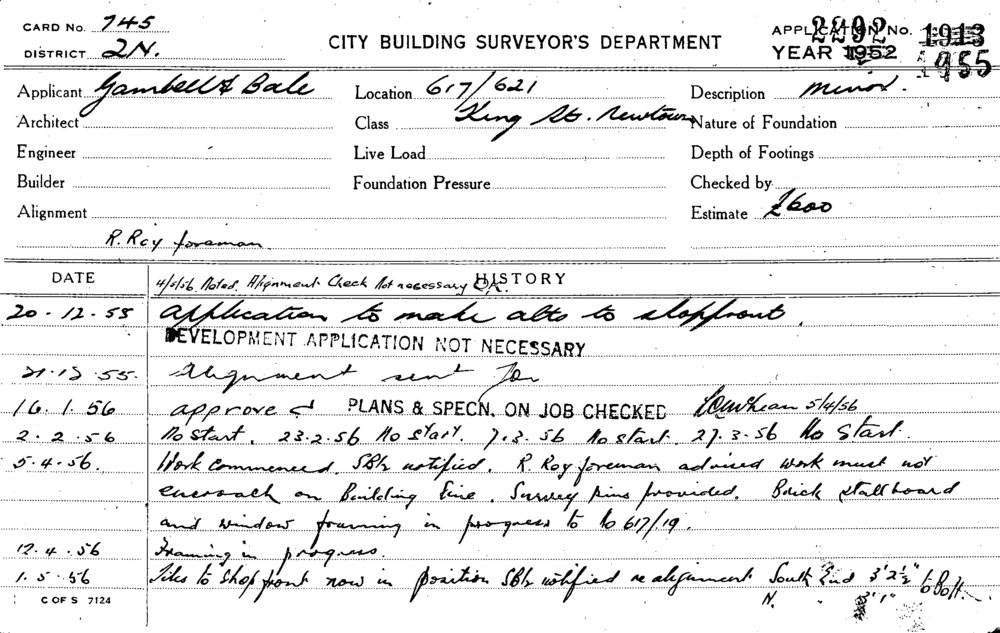 CARD No. 745
DISTRICT 2N.
CITY BUILDING SURVEYOR'S DEPARTMENT
APPLICATION No. 2292 1913
YEAR 1952 1955
Applicant Gambell & Bale
Location 617/621
Description minor.
Architect
Class King St. Newtown
Nature of Foundation
Engineer
Live Load
Depth of Footings
Builder
Foundation Pressure
Checked by
Alignment
Estimate £600
R. Roy foreman.
DATE
HISTORY
4/5/56. Noted. Alignment Check Not necessary
20.12.55 application to make alts to shopfront.
DEVELOPMENT APPLICATION NOT NECESSARY
21.12.55. Alignment sent for
16.1.56 approved PLANS & SPECN. ON JOB CHECKED 5/4/56
2.2.56 No start. 23.2.56 No start. 7.3.56 No start. 27.3.56 No Start.
5.4.56. Work commenced. SBIr notified. R. Roy foreman advised work must not
encroach on Building Line. Survey pins provided. Brick stallboard
and window framing in progress to No 617/19.
12.4.56 Framing in progress.
1.5.56 Tiles to shopfront now in position SBIr notified re alignment South End 3'2½" to Bolt.
N. " 3'1"
C OF S 7124